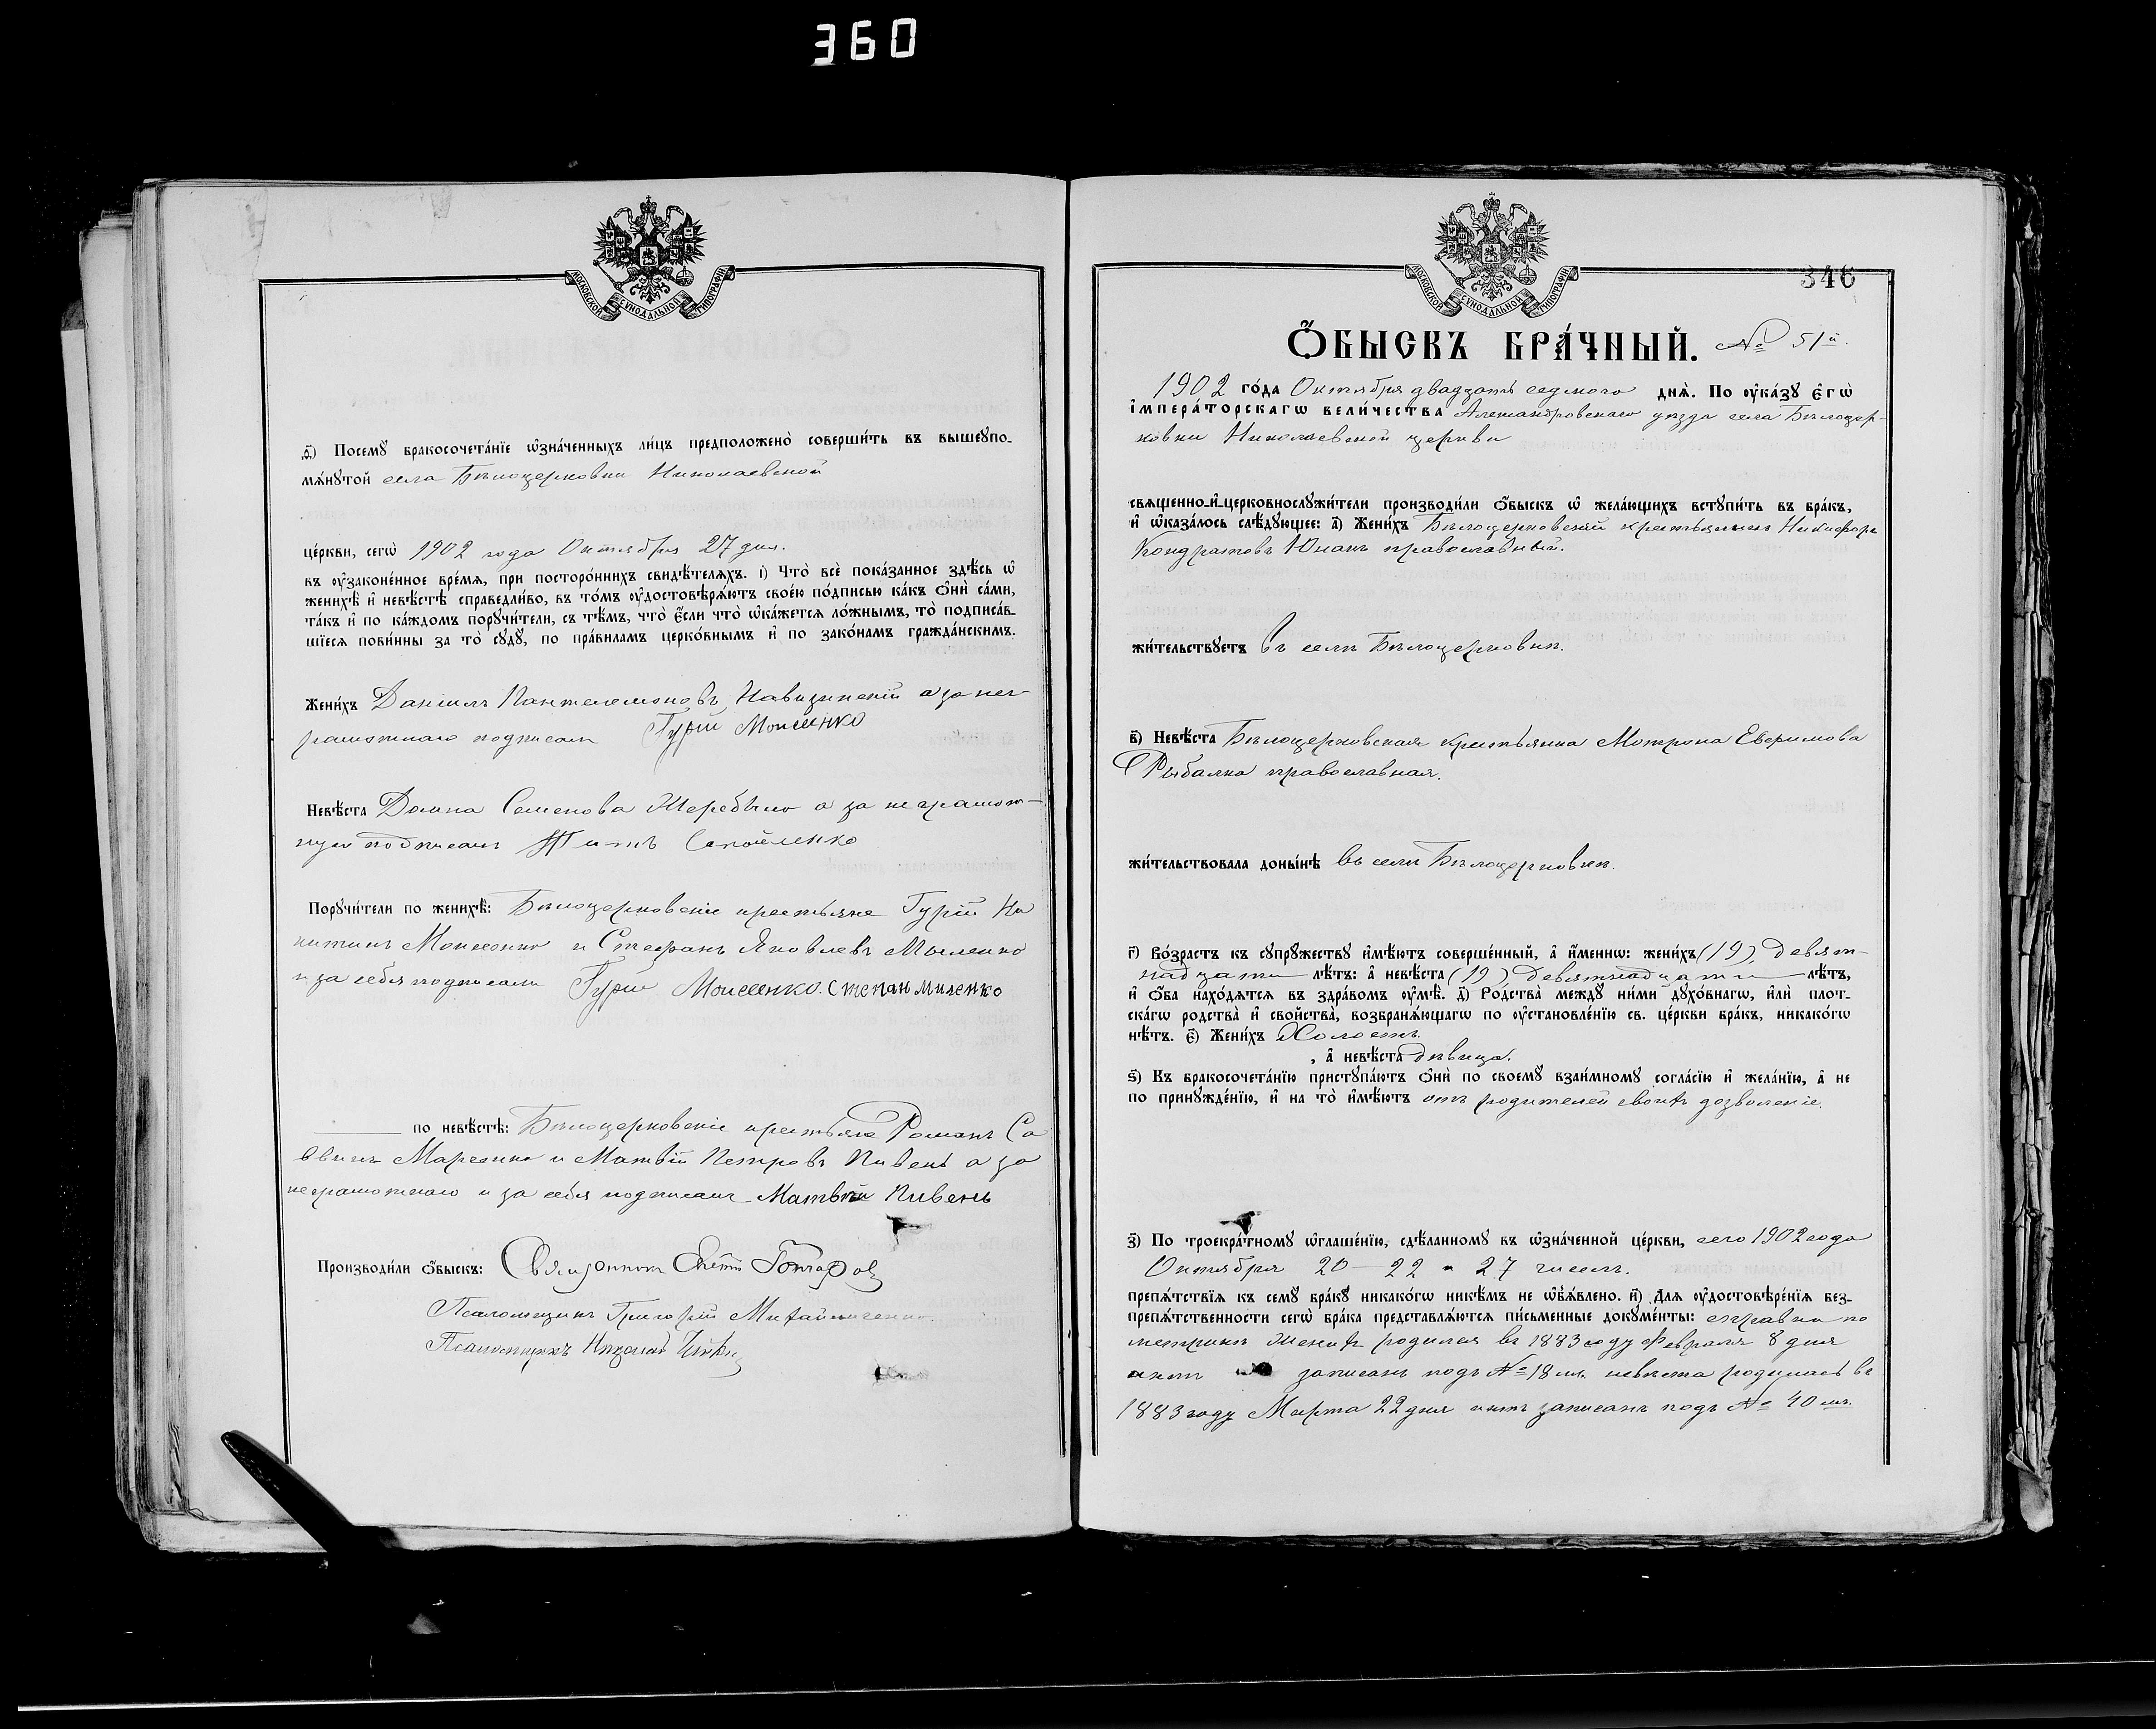 360
МОСКОВСКОЙ СѴНОДАЛЬНОЙ ТИПОГРАФІИ
ѳ҃) Посемꙋ бракосочета́нїе ѡ҆зна́ченныхъ ли́цъ предположено̀ соверши́ть въ вышеꙋпо-
мѧ́нꙋтой села Бѣлоцерковки Николаевской
це́ркви, сегѡ̀ 1902 года Октября 27 дня.
въ ᲂу҆зако́ненное вре́мѧ, при посторо́ннихъ свидѣ́телѧхъ. і҃) Что̀ всѐ пока́занное здѣ́сь ѡ҆
женихѣ̀ и҆ невѣ́стѣ справедли́во, въ то́мъ ᲂу҆достовѣрѧ́ютъ свое́ю по́дписью ка́къ ѻ҆нѝ са́ми,
та́къ и҆ по ка́ждомъ порꙋчи́тели, съ тѣ́мъ, что̀ є҆́сли что̀ ѡ҆ка́жетсѧ ло́жнымъ, то̀ подписа́в-
шїесѧ пови́нны за то̀ сꙋдꙋ̀, по пра́виламъ церко́внымъ и҆ по зако́намъ гражда́нскимъ.
Жени́хъ Даніилъ Пантелеимоновъ а за нег-
рамотнаго подписалъ Гурій Моисѣнко
Невѣ́ста Домна Семенова Жеребыло а за неграмот-
ную подписалъ Титъ Самойленко
Порꙋчи́тели по женихѣ̀: Бѣлоцерковскіе крестьяне Гурій Ни
китинъ Моисеенко и Стефанъ Яковлевъ Мыленко
и за себя подписали Гурій Моисеенко. Степан Миленко
по невѣ́стѣ: Бѣлоцерковскіе крестьяне Романъ Са
ввинъ Марченко и Матвій Петровъ Пивень а за
неграмотнаго и за себя подписалъ Матвѣй Пивень
Производи́ли ѻ҆́быскъ: Священникъ Гончаровъ
Псаломщикъ Григорій Михайличенко.
Псаломщикъ Николай
МОСКОВСКОЙ СѴНОДАЛЬНОЙ ТИПОГРАФІИ
346
Ѻ҆́БЫСКЪ БРА́ЧНЫЙ. № 51й.
1902 го́да Октября двадцать седмого днѧ̀. По ᲂу҆ка́зꙋ є҆гѡ̀
і҆мпера́торскагѡ вели́чества Александровскаго уѣзда села Бѣлоцер-
ковки Николаевской церкви
свѧщенно-и҆-церковнослꙋжи́тели производи́ли ѻ҆́быскъ ѡ҆ жела́ющихъ встꙋпи́ть въ бра́къ,
и҆ ѡ҆каза́лось слѣ́дꙋющее: а҃) Жени́хъ Бѣлоцерковскій крестьянинъ Никифоръ
Кондратовъ Юнакъ православный.
жи́тельствꙋетъ въ селѣ Бѣлоцерковкѣ.
в҃) Невѣ́ста Бѣлоцерковская крестьянка Мотрона Евфимова
Рыбалка православная.
жи́тельствовала доны́нѣ въ селѣ Бѣлоцерковкѣ.
г҃) Во́зрастъ къ сꙋпрꙋжествꙋ и҆мѣ́ютъ соверше́нный, а҆ и҆́меннѡ: жени́хъ (19) девят-
надцати лѣ́тъ: а҆ невѣ́ста (19) девятнадцати лѣ́тъ,
и҆ ѻ҆́ба нахо́дѧтсѧ въ здра́вомъ ᲂу҆мѣ̀. д҃) Ро́дства междꙋ ни́ми дꙋхо́внагѡ, и҆лѝ плот-
ска́гѡ родства̀ и҆ сво́йства, возбранѧ́ющагѡ по ᲂу҆становле́нїю св. це́ркви бра́къ, никако́гѡ
нѣ́тъ. є҃) Жени́хъ Холостъ
, а҆ невѣ́ста дѣвица.
ѕ҃) Къ бракосочета́нїю пристꙋпа́ютъ ѻ҆нѝ по своемꙋ̀ взаи́мномꙋ согла́сїю и҆ жела́нїю, а҆ не
по принꙋжде́нїю, и҆ на то̀ и҆мѣ́ютъ отъ родителей своихъ дозволеніе.
з҃) По троекра́тномꙋ ѡ҆глаше́нїю, сдѣ́ланномꙋ въ ѡ҆зна́ченной це́ркви, сего 1902 года
Октября 20 — 22 и 27 чиселъ.
препѧ́тствїѧ къ семꙋ̀ бра́кꙋ никако́гѡ никѣ́мъ не ѡ҆б̾ѧ́влено. и҃) Длѧ ᲂу҆достовѣре́нїѧ без-
препѧ́тственности сегѡ̀ бра́ка представлѧ́ютсѧ пи́сьменные докꙋме́нты: справки по
метрикѣ Женихъ родился въ 1883 году Февраля 8 дня
актъ записанъ подъ № 18 мъ. невѣста родилась въ
1883 году Марта 22 дня актъ записанъ подъ № 40 мъ.